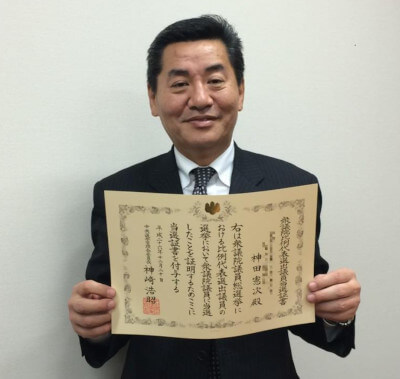 衆議院比例代表選出議員当選証書
神田憲次殿
右は衆議院議員総選挙に
おける比例代表選出議員の
選挙において衆議院議員に当選
したことを証明するためここに
当選証書を付与する
平成二十六年十二月二十日
中央選挙管理会委員長 神崎浩昭